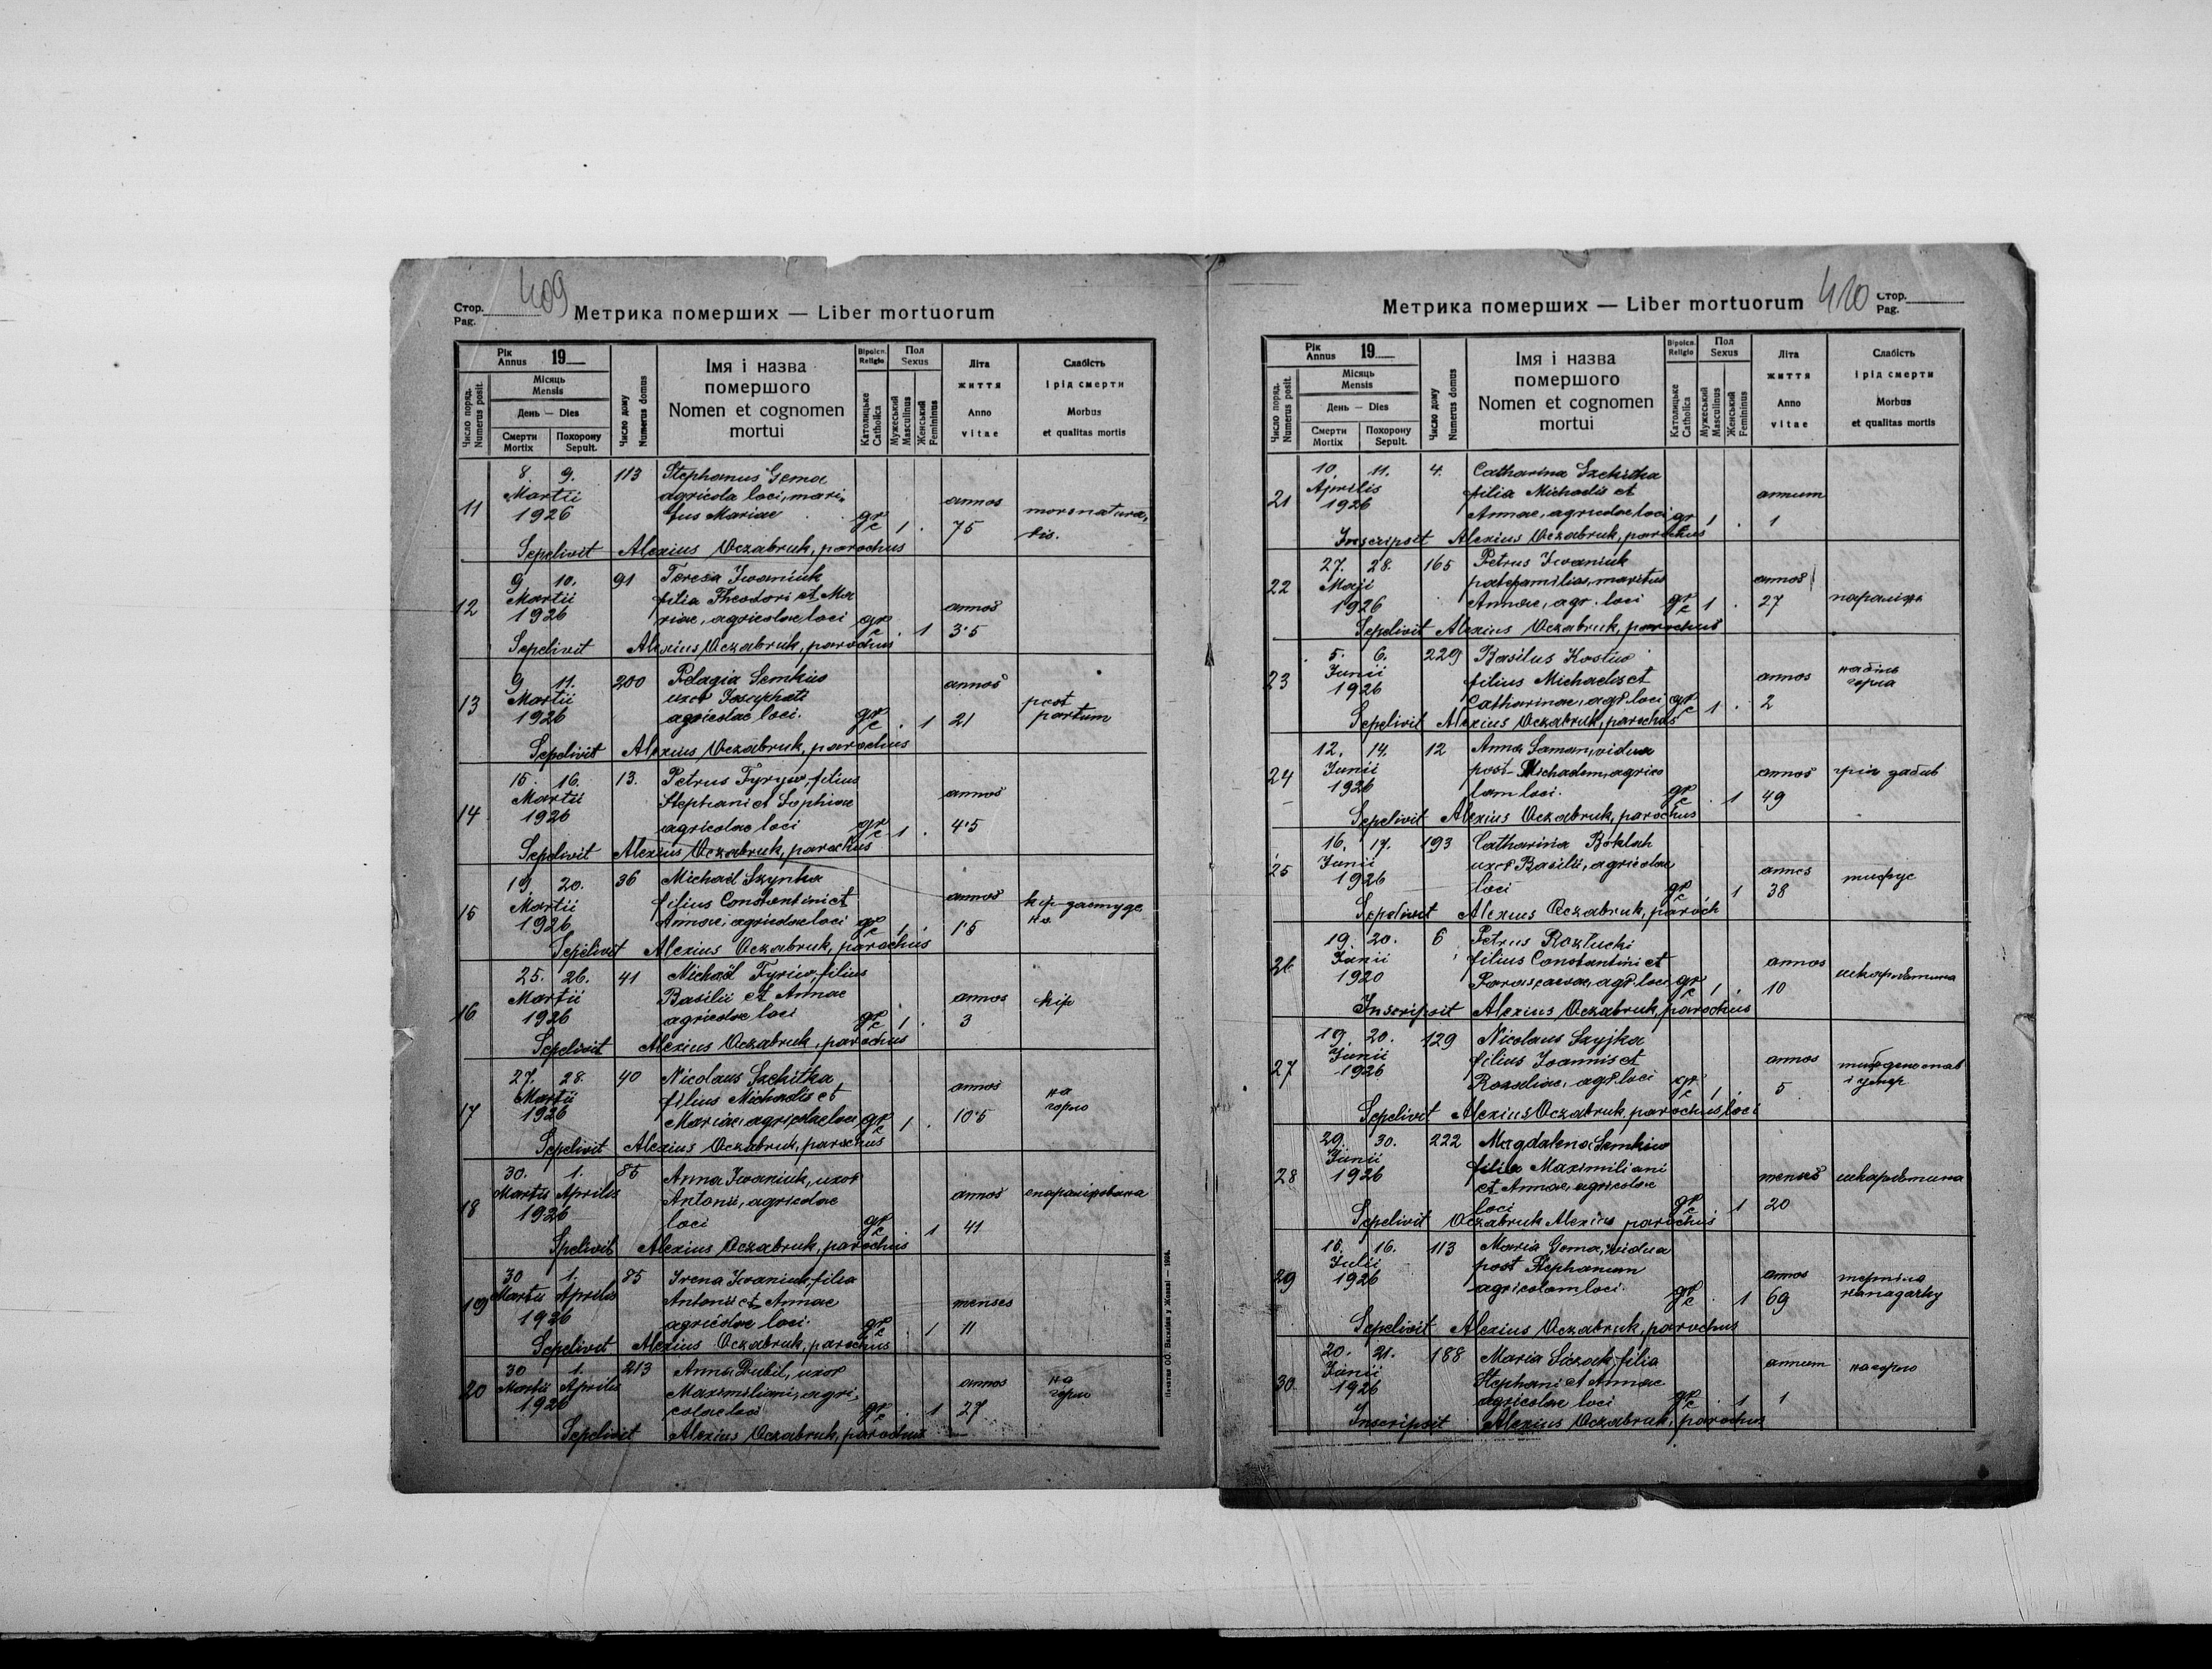 Стор.
Pag.
409
Метрика померших — Liber mortuorum
Рік
Annus 19
Число поряд.
Numerus posit.
Місяць
Mensis
День — Dies
Смерти
Mortix
Похорону
Sepult.
Число дому
Numerus domus
Імя і назва
помершого
Nomen et cognomen
mortui
Віроісп.
Religio
Католицьке
Catholica
Пол
Sexus
Мужеський
Masculinus
Женський
Femininus
Літа
життя
Anno
vitae
Слабість
і рід смерти
Morbus
et qualitas mortis
8. 9. 113 Stephanus Gema
Martii agricola loci, mari-
11 1926 tus Mariae gr c 1 . annos 75 mors natura-
lis.
Sepelivit Alexius Oczabruk, parochus
9 10. 91 Teresa Iwaniuk
12 Martii filia Theodori et Ma
1926 riae, agricolae loci gr c . 1 annos 3·5
Sepelivit Alexius Oczabruk, parochus
9 11. 200 Pelagia Semkiw
13 Martii uxor Josaphati
1926 agricolae loci. gr c . 1 annos 21 post
partum
Sepelivit Alexius Oczabruk, parochus
15 16. 13. Petrus Tyryw, filius
14 Martii Stephani et Sophiae
1926 agricolae loci gr c 1 . annos 4·5
Sepelivit Alexius Oczabruk, parochus
19 20. 36 Michaël Szynka
15 Martii filius Constantini et
1926 Annae, agricolae loci gr c 1 . annos 1·5 кір
Sepelivit Alexius Oczabruk, parochus
25. 26. 41 Michaël Tyriw, filius
16 Martii Basilii et Annae
1926 agricolae loci gr c 1 . annos 3 кір
Sepelivit Alexius Oczabruk, parochus
27. 28. 40 Nicolaus Szchitka
17 Martii filius Michaelis et
1926 Mariae, agricolae loci gr c 1 . annos 10·5 на
горло
Sepelivit Alexius Oczabruk, parochus
30. 1. 85 Anna Iwaniuk, uxor
18 Martii Aprilis Antonii, agricolae
1926 loci gr c . 1 annos 41 спаралізована
Spelivit Alexius Oczabruk, parochus
30 1. 85 Irena Iwaniuk, filia
19 Martii Aprilis Antonii et Annae
1926 agricolae loci. gr c . 1 menses 11
Sepelivit Alexius Oczabruk, parochus
30 1. 213 Anna Dubil, uxor
20 Martii Aprilis Maximiliani, agri-
1926 colae loci gr c . 1 annos 27 на
горло
Sepelivit Alexius Oczabruk, parochus
Печатня ОО. Василіян у Жовкві
Метрика померших — Liber mortuorum
420
Стор.
Pag.
Рік
Annus 19
Число поряд.
Numerus posit.
Місяць
Mensis
День — Dies
Смерти
Mortix
Похорону
Sepult.
Число дому
Numerus domus
Імя і назва
помершого
Nomen et cognomen
mortui
Віроісп.
Religio
Католицьке
Catholica
Пол
Sexus
Мужеський
Masculinus
Женський
Femininus
Літа
життя
Anno
vitae
Слабість
і рід смерти
Morbus
et qualitas mortis
10 11. 4. Catharina Szchitka
21 Aprilis filia Michaelis et
1926 Annae, agricolae loci gr c 1 . annum 1
Inscripsit Alexius Oczabruk, parochus
27. 28. 165 Petrus Iwaniuk
22 Maji paterfamilias, maritus
1926 Annae, agr. loci gr c 1 . annos 27 параліж
Sepelivit Alexius Oczabruk, parochus
5. 6. 229 Basilus Kostiw
23 Junii filius Michaelis et
1926 Catharinae, agr. loci gr c 1 . annos 2 на біль
горла
Sepelivit Alexius Oczabruk, parochus
12. 14. 12 Anna Saman, vidua
24 Junii post Michaelem, agrico
1926 lam loci. gr c . 1 annos 49 грім забив
Sepelivit Alexius Oczabruk, parochus
16. 17. 193 Catharina Boklah
25 Junii uxor Basilii, agricolae
1926 loci gr c . 1 annos 38 тифус
Sepelivit Alexius Oczabruk, paroch
19. 20. 6 Petrus Rozłucki
26 Junii filius Constantini et
1920 Parascevae, agr. loci gr c 1 . annos 10 шкарлятина
Inscripsit Alexius Oczabruk, parochus
19. 20. 129 Nicolaus Szyjka
27 Junii filius Joannis et
1926 Rozaliae, agr. loci gr c 1 . annos 5
Sepelivit Alexius Oczabruk, parochus loci
29. 30. 222 Magdalena Semkiw
Junii filia Maximiliani
28 1926 et Annae, agricolae
loci gr c . 1 menses 20 шкарлятина
Sepelivit Oczabruk Alexius parochus.
15. 16. 113 Maria Gema, vidua
Julii post Stephanum
29 1926 agricolam loci. gr c . 1 annos 69 терпіла
Sepelivit Alexius Oczabruk, parochus
20. 21. 188 Maria Liczak, filia
Junii Stephani et Annae
30. 1926 agricolae loci gr c . 1 annum 1 на горло
Inscripsit Alexius Oczabruk, parochus